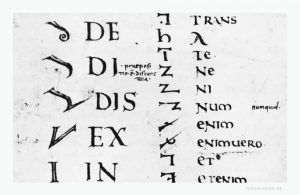 DE
DI
DIS
EX
IN
TRANS
A
TE
NE
NI
NUM numquid.
enim
enimuero
et
etenim